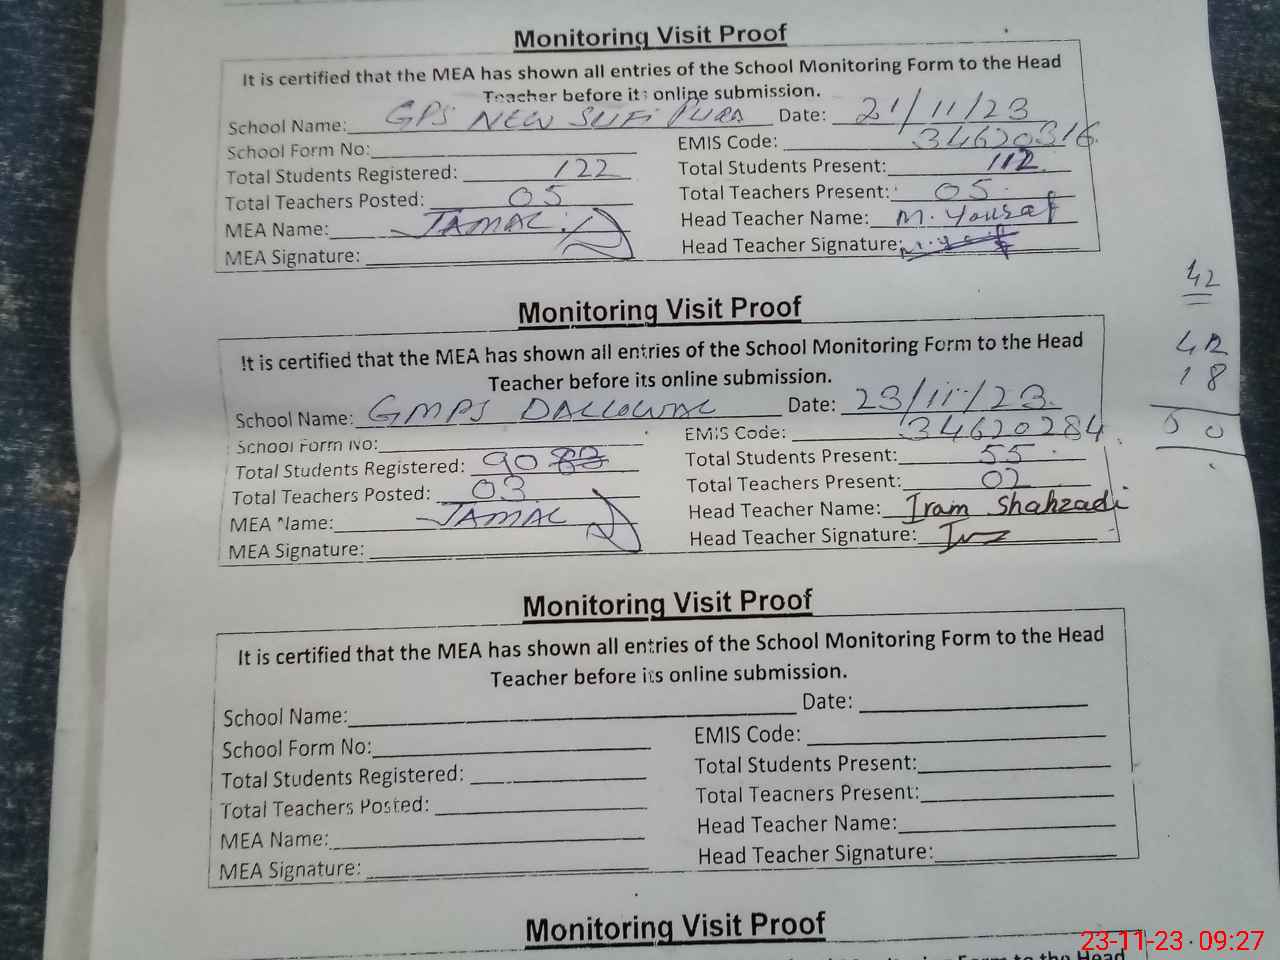 Monitoring Visit Proof
It is certified that the MEA has shown all entries of the School Monitoring Form to the Head
Teacher before its online submission.
School Name: GPS NEW SUFI PURA Date: 21/11/23
School Form No: EMIS Code: 34620316
Total Students Registered: 122 Total Students Present: 112
Total Teachers Posted: 05 Total Teachers Present: 05
MEA Name: JAMAL Head Teacher Name: M. Yousaf
MEA Signature: Head Teacher Signature: M. Yousaf
42
Monitoring Visit Proof
It is certified that the MEA has shown all entries of the School Monitoring Form to the Head
Teacher before its online submission.
42
18
School Name: GMPS DALLOWAL Date: 23/11/23
School Form No: EMIS Code: 34620284
Total Students Registered: 90 Total Students Present: 55
Total Teachers Posted: 03 Total Teachers Present: 02
MEA Name: JAMAL Head Teacher Name: Iram Shahzadi
MEA Signature: Head Teacher Signature:
Monitoring Visit Proof
It is certified that the MEA has shown all entries of the School Monitoring Form to the Head
Teacher before its online submission.
School Name: Date:
School Form No: EMIS Code:
Total Students Registered: Total Students Present:
Total Teachers Posted: Total Teachers Present:
MEA Name: Head Teacher Name:
MEA Signature: Head Teacher Signature:
Monitoring Visit Proof
23-11-23 09:27